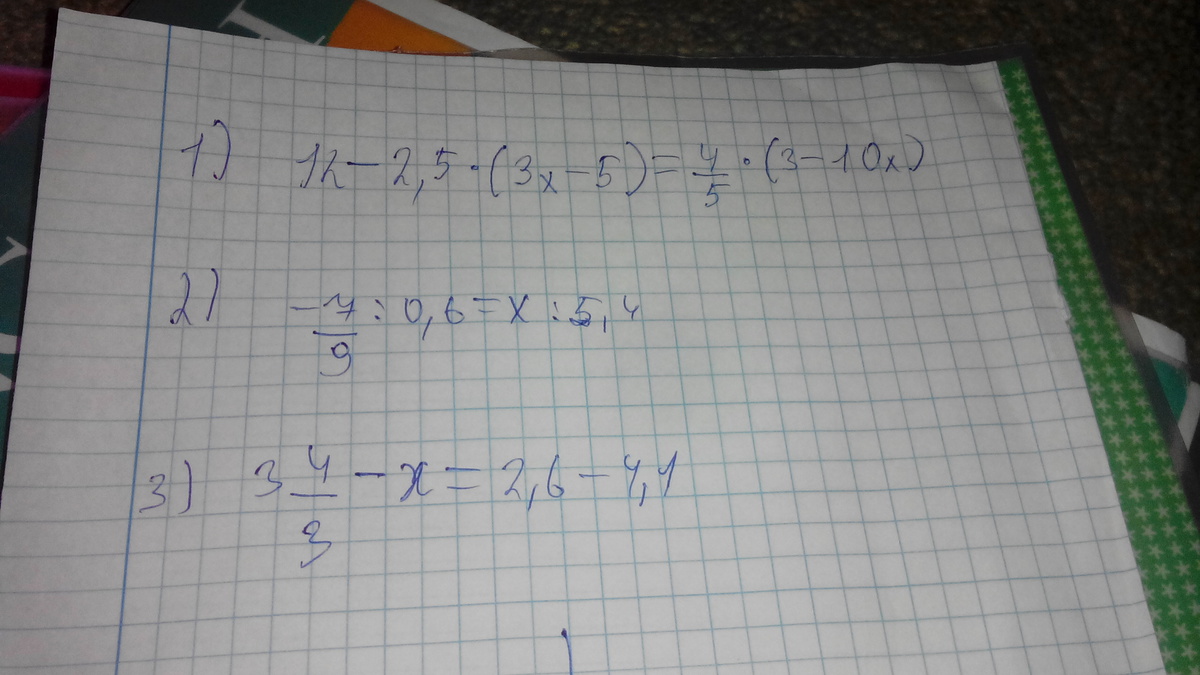 1) 12 - 2,5 · (3x - 5) = 4/5 · (3 - 10x)
2) -7/9 : 0,6 = x : 5,4
3) 3 4/3 - x = 2,6 - 4,1